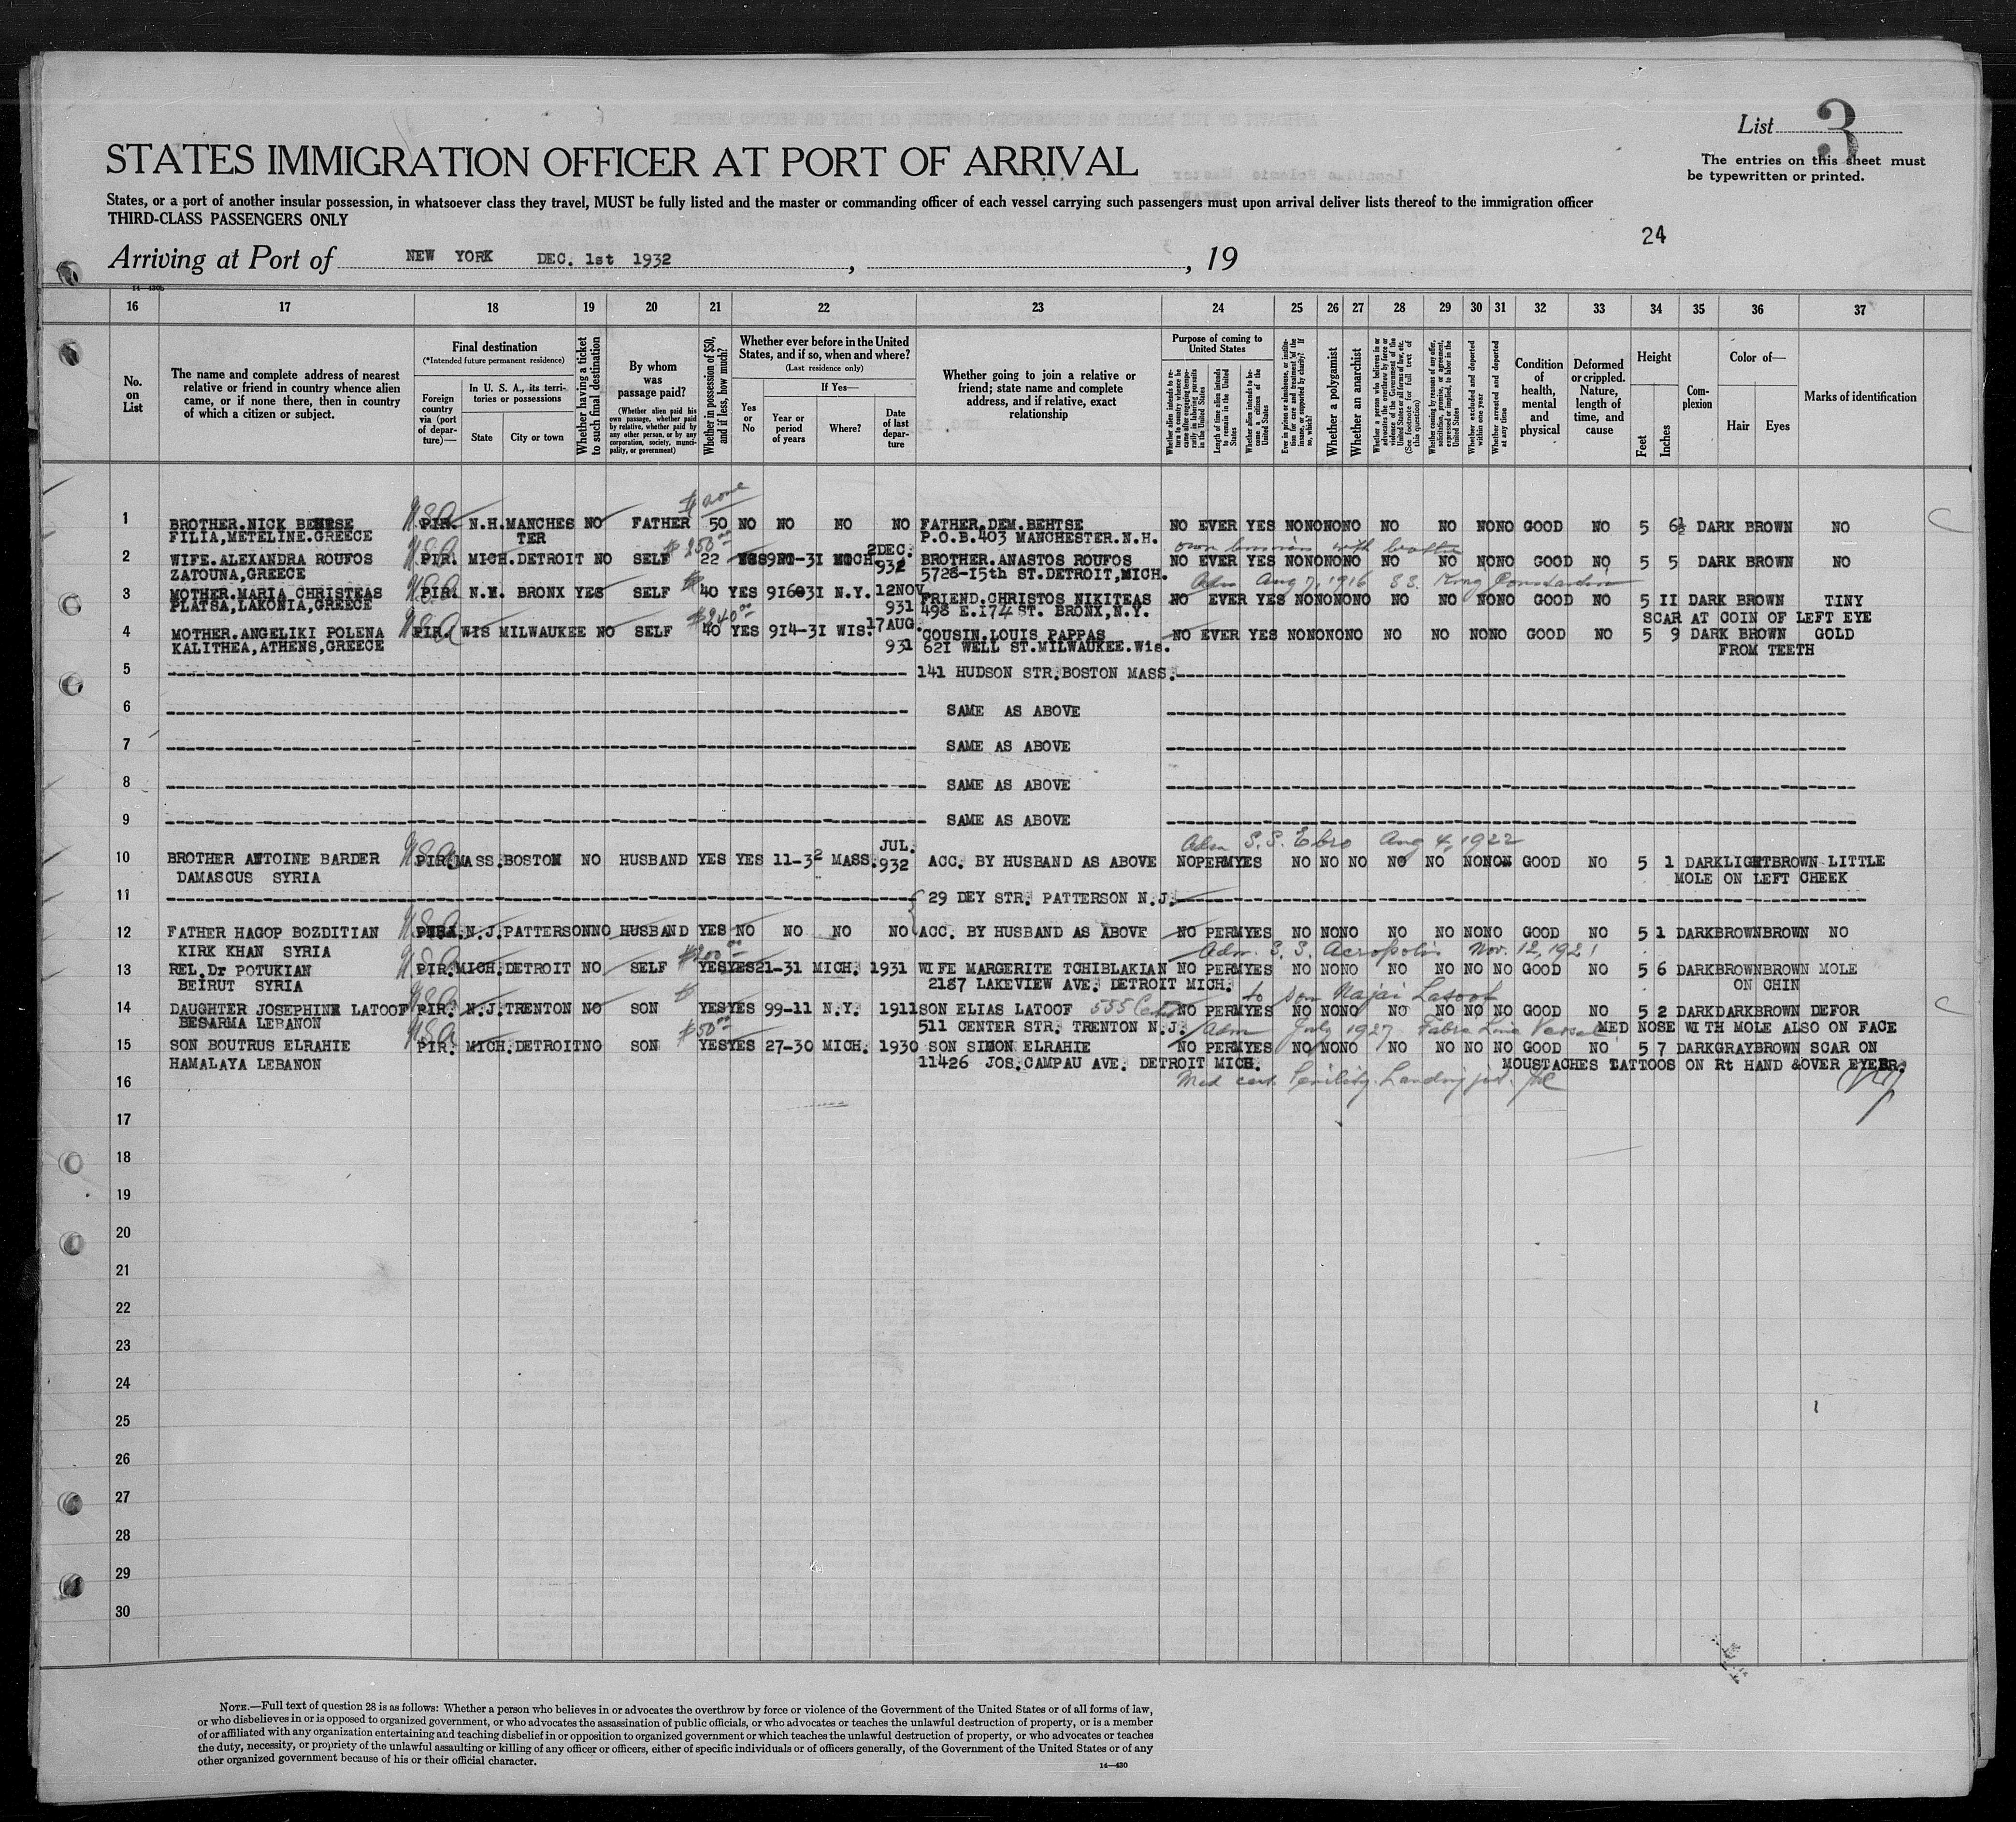 List 3
The entries on this sheet must
be typewritten or printed.
STATES IMMIGRATION OFFICER AT PORT OF ARRIVAL
States, or a port of another insular possession, in whatsoever class they travel, MUST be fully listed and the master or commanding officer of each vessel carrying such passengers must upon arrival deliver lists thereof to the immigration officer
THIRD-CLASS PASSENGERS ONLY
24
Arriving at Port of NEW YORK DEC. 1st 1932, , 19
14—430b
16 17 18 19 20 21 22 23 24 25 26 27 28 29 30 31 32 33 34 35 36 37
No. on List
The name and complete address of nearest relative or friend in country whence alien came, or if none there, then in country of which a citizen or subject.
Final destination
(*Intended future permanent residence)
Foreign country via (port of departure)—
In U. S. A., its territories or possessions
State
City or town
Whether having a ticket to such final destination
By whom was passage paid?
(Whether alien paid his own passage, whether paid by relative, whether paid by any other person, or by any corporation, society, municipality, or government)
Whether in possession of $50, and if less, how much?
Whether ever before in the United States, and if so, when and where?
(Last residence only)
Yes or No
If Yes—
Year or period of years
Where?
Date of last departure
Whether going to join a relative or friend; state name and complete address, and if relative, exact relationship
Purpose of coming to United States
Whether alien intends to return to country whence he came after engaging temporarily in laboring pursuits in the United States
Length of time alien intends to remain in the United States
Whether alien intends to become a citizen of the United States
Ever in prison or almshouse, or institution for care and treatment of the insane, or supported by charity? If so, which?
Whether a polygamist
Whether an anarchist
Whether a person who believes in or advocates the overthrow by force or violence of the Government of the United States or all forms of law, etc. (See footnote for full text of this question)
Whether coming by reason of any offer, solicitation, promise, or agreement, expressed or implied, to labor in the United States
Whether excluded and deported within one year
Whether arrested and deported at any time
Condition of health, mental and physical
Deformed or crippled. Nature, length of time, and cause
Height
Feet
Inches
Complexion
Color of—
Hair
Eyes
Marks of identification
$ none
1 BROTHER.NICK BEHTSE USA PIR. N.H. MANCHES NO FATHER 50 NO NO NO NO FATHER.DEM.BEHTSE NO EVER YES NO NO NO NO NO NO NO NO GOOD NO 5 6½ DARK BROWN NO
FILIA,METELINE.GREECE TER P.O.B.403 MANCHESTER.N.H.
USA $250.00 2DEC. own business with brother
2 WIFE.ALEXANDRA ROUFOS PIR. MICH. DETROIT NO SELF 22 YES 9 -31 MICH 932 BROTHER.ANASTOS ROUFOS NO EVER YES NO NO NO NO NO NO NO NO GOOD NO 5 5 DARK BROWN NO
ZATOUNA,GREECE 5728-15th ST.DETROIT,MICH.
USA Adm Aug 7, 1916 SS. King Constantine
3 MOTHER.MARIA CHRISTEAS PIR. N.Y. BRONX YES SELF 40 YES 916-31 N.Y. 12NOV 931 FRIEND.CHRISTOS NIKITEAS NO EVER YES NO NO NO NO NO NO NO NO GOOD NO 5 11 DARK BROWN TINY
PLATSA,LAKONIA,GREECE 498 E.174 ST. BRONX,N.Y. SCAR AT COIN OF LEFT EYE
USA $240.00 17AUG.
4 MOTHER.ANGELIKI POLENA PIR. WIS MILWAUKEE NO SELF 40 YES 914-31 WIS. 931 COUSIN.LOUIS PAPPAS NO EVER YES NO NO NO NO NO NO NO NO GOOD NO 5 9 DARK BROWN GOLD
KALITHEA,ATHENS,GREECE 621 WELL ST.MILWAUKEE.Wis. FROM TEETH
5 141 HUDSON STR.BOSTON MASS.
6 SAME AS ABOVE
7 SAME AS ABOVE
8 SAME AS ABOVE
9 SAME AS ABOVE
Adm S.S. Ebro Aug 4, 1922
10 BROTHER ANTOINE BARDER USA PIR. MASS. BOSTON NO HUSBAND YES YES 11-32 MASS. JUL. 932 ACC. BY HUSBAND AS ABOVE NO PERM YES NO NO NO NO NO NO NON GOOD NO 5 1 DARK LIGHTBROWN LITTLE
DAMASCUS SYRIA MOLE ON LEFT CHEEK
11 29 DEY STR. PATTERSON N.J.
12 FATHER HAGOP BOZDITIAN USA N.J. PATTERSON NO HUSBAND YES NO NO NO NO ACC. BY HUSBAND AS ABOVE NO PERM YES NO NO NO NO NO NO NO GOOD NO 5 1 DARK BROWN BROWN NO
KIRK KHAN SYRIA
USA $200.00 Adm. S.S. Acropolis Nov. 12, 1921
13 REL.Dr POTUKIAN PIR. MICH. DETROIT NO SELF YES YES 21-31 MICH. 1931 WIFE MARGERITE TCHIBLAKIAN NO PERM YES NO NO NO NO NO NO NO GOOD NO 5 6 DARK BROWN BROWN MOLE
BEIRUT SYRIA 2187 LAKEVIEW AVE. DETROIT MICH. ON CHIN
USA to son Najai Latoof
14 DAUGHTER JOSEPHINE LATOOF PIR. N.J. TRENTON NO SON YES YES 99-11 N.Y. 1911 SON ELIAS LATOOF 555 NO PERM YES NO NO NO NO NO NO NO GOOD NO 5 2 DARK DARK BROWN DEFOR
BESARMA LEBANON 511 CENTER STR. TRENTON N.J. MED NOSE WITH MOLE ALSO ON FACE
USA $50.00 Adm July 1927 Fabre Line Vessel
15 SON BOUTRUS ELRAHIE PIR. MICH. DETROIT NO SON YES YES 27-30 MICH. 1930 SON SIMON ELRAHIE NO PERM YES NO NO NO NO NO NO NO GOOD NO 5 7 DARK GRAY BROWN SCAR ON
HAMALAYA LEBANON 11426 JOS.CAMPAU AVE. DETROIT MICH. MOUSTACHES TATTOOS ON Rt HAND &OVER EYEBR.
16 Med cert. Senility. Landing
17
18
19
20
21
22
23
24
25
26
27
28
29
30
NOTE.—Full text of question 28 is as follows: Whether a person who believes in or advocates the overthrow by force or violence of the Government of the United States or of all forms of law,
or who disbelieves in or is opposed to organized government, or who advocates the assassination of public officials, or who advocates or teaches the unlawful destruction of property, or is a member
of or affiliated with any organization entertaining and teaching disbelief in or opposition to organized government or which teaches the unlawful destruction of property, or who advocates or teaches
the duty, necessity, or propriety of the unlawful assaulting or killing of any officer or officers, either of specific individuals or of officers generally, of the Government of the United States or of any
other organized government because of his or their official character.
14—430